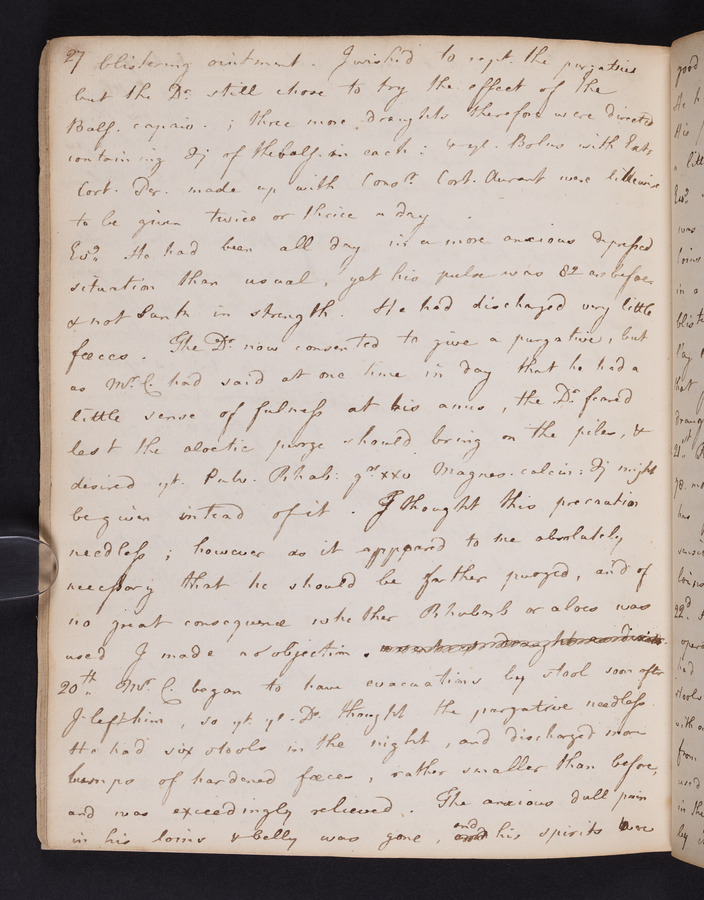 27 blistering ointment. I wish'd to rept. the purgatives
but the Dr. still chose to try the effect of the
Balf. capaiv.; three more draughts therefore were directed
containing ʒj of the balf. in each: & yt. Bolus with Extr.
Cort. Per. made up with Cons. Cort. Aurant were likewise
to be given twice or thrice a day.
Evg. He had been all day in a more anxious depressed
situation than usual, yet his pulse was 82 as before
& not sunk in strength. He had discharged very little
fæces. The Dr. now consented to give a purgative, but
as Mr. C. had said at one time in day that he had a
little sense of fulness at his anus, the Dr. feared
lest the aloetic purge should bring on the piles, &
desired yt. Pulv. Rhab: gr. xxv Magnes. calcin: ʒj might
be given instead of it. I thought this precaution
needless; however as it appeared to me absolutely
necessary that he should be farther purged, and of
no great consequence whether Rhubarb or aloes was
used I made no objection.
20th. Mr. C. began to have evacuations by stool soon after
I left him, so yt. ye. Dr. thought the purgative needless.
He had six stools in the night, and discharged more
lumps of hardened fæces, rather smaller than before,
and was exceedingly relieved. The anxious dull pain
in his loins & belly was gone, and his spirits were
good
He h
His
a litt
Evg.
was
loins
in a
bliste
that
21st.
22d.
oper
had
stools
with
from
used
in the
by